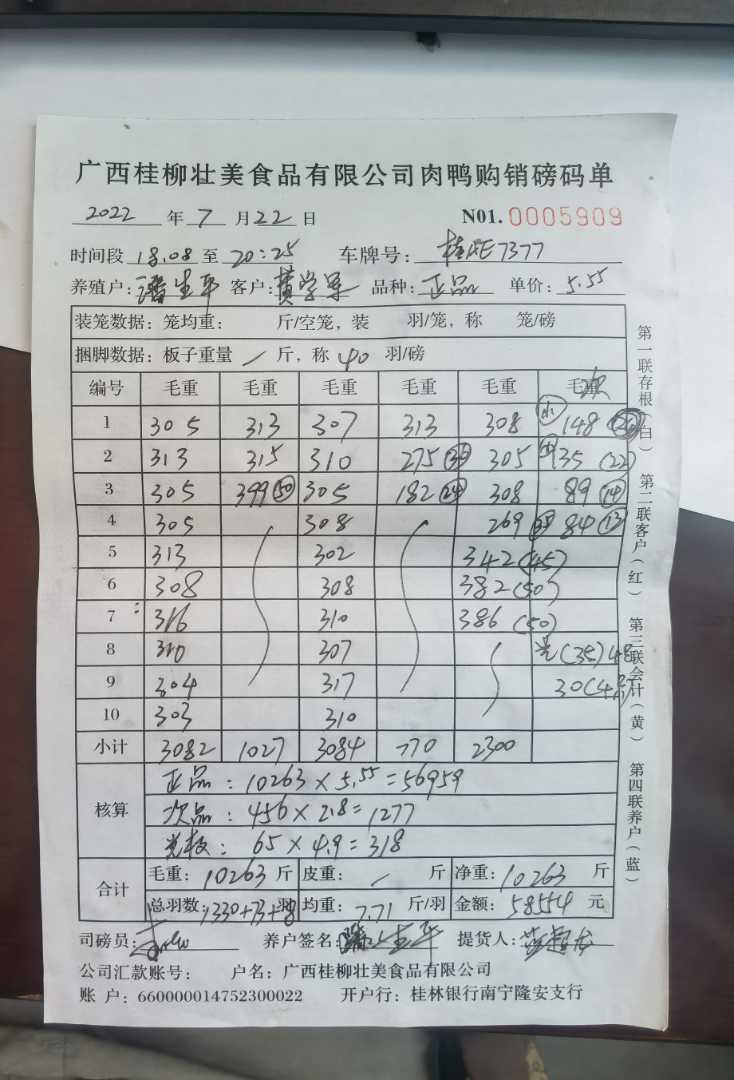 广西桂柳壮美食品有限公司肉鸭购销磅码单
2022 年 7 月 22 日 N01. 0005909
时间段 18.08 至 20:25 车牌号: 桂 E7377
养殖户: 潘生平 客户: 黄学军 品种: 正品 单价: 5.55
装笼数据: 笼均重: 斤/空笼, 装 羽/笼, 称 笼/磅
捆脚数据: 板子重量 / 斤, 称 40 羽/磅
编号 毛重 毛重 毛重 毛重 毛重 毛 次
1 305 313 307 313 308 小 148
2 313 315 310 275 (35) 305 35 (22)
3 305 399 (50) 305 182 (24) 308 89 (14)
4 305 308 269 84 (13)
5 313 302 342 (45)
6 308 308 382 (50)
7 316 310 386 (50)
8 310 307 光 (35) 48
9 304 317 30
10 303 310
小计 3082 1027 3084 770 2300
核算
正品: 10263 × 5.55 = 56959
次品: 456 × 2.8 = 1277
光板: 65 × 4.9 = 318
合计
毛重: 10263 斤 皮重: / 斤 净重: 10263 斤
总羽数: 1330+73+8 羽 均重: 7.71 斤/羽 金额: 58554 元
司磅员: 养户签名: 潘生平 提货人:
公司汇款账号: 户名: 广西桂柳壮美食品有限公司
账 户: 660000014752300022 开户行: 桂林银行南宁隆安支行
第一联存根(白) 第二联客户(红) 第三联会计(黄) 第四联养户(蓝)